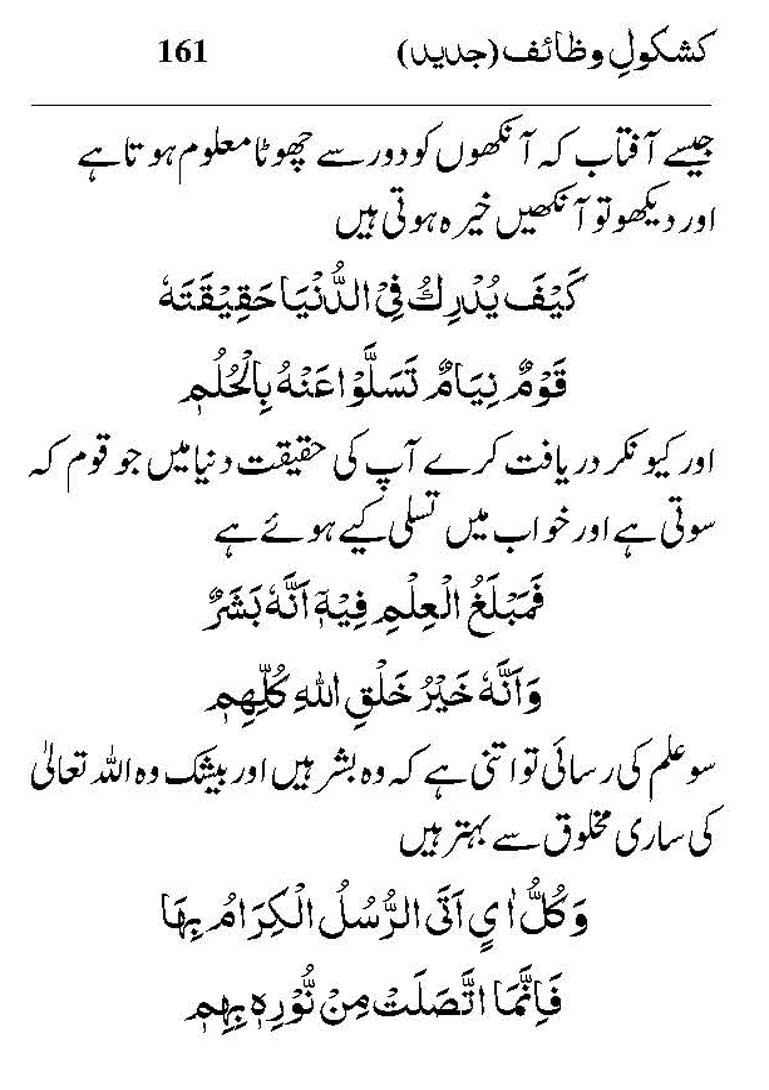 کشکولِ وظائف (جدید) 161
جیسے آفتاب کہ آنکھوں کو دور سے چھوٹا معلوم ہوتا ہے
اور دیکھو تو آنکھیں خیرہ ہوتی ہیں
كَيْفَ يُدْرِكُ فِي الدُّنْيَا حَقِيْقَتَهٗ
قَوْمٌ نِيَامٌ تَسَلَّوْا عَنْهُ بِالْحُلُمِ
اور کیونکر دریافت کرے آپ کی حقیقت دنیا میں جو قوم کہ
سوتی ہے اور خواب میں تسلی کیے ہوئے ہے
فَمَبْلَغُ الْعِلْمِ فِيْهِ اَنَّهٗ بَشَرٌ
وَاَنَّهٗ خَيْرُ خَلْقِ اللهِ كُلِّهِمٖ
سو علم کی رسائی تو اتنی ہے کہ وہ بشر ہیں اور بیشک وہ اللہ تعالیٰ
کی ساری مخلوق سے بہتر ہیں
وَكُلُّ اٰيٍ اَتَى الرُّسُلُ الْكِرَامُ بِهَا
فَاِنَّمَا اتَّصَلَتْ مِنْ نُّوْرِهٖ بِهِمٖ